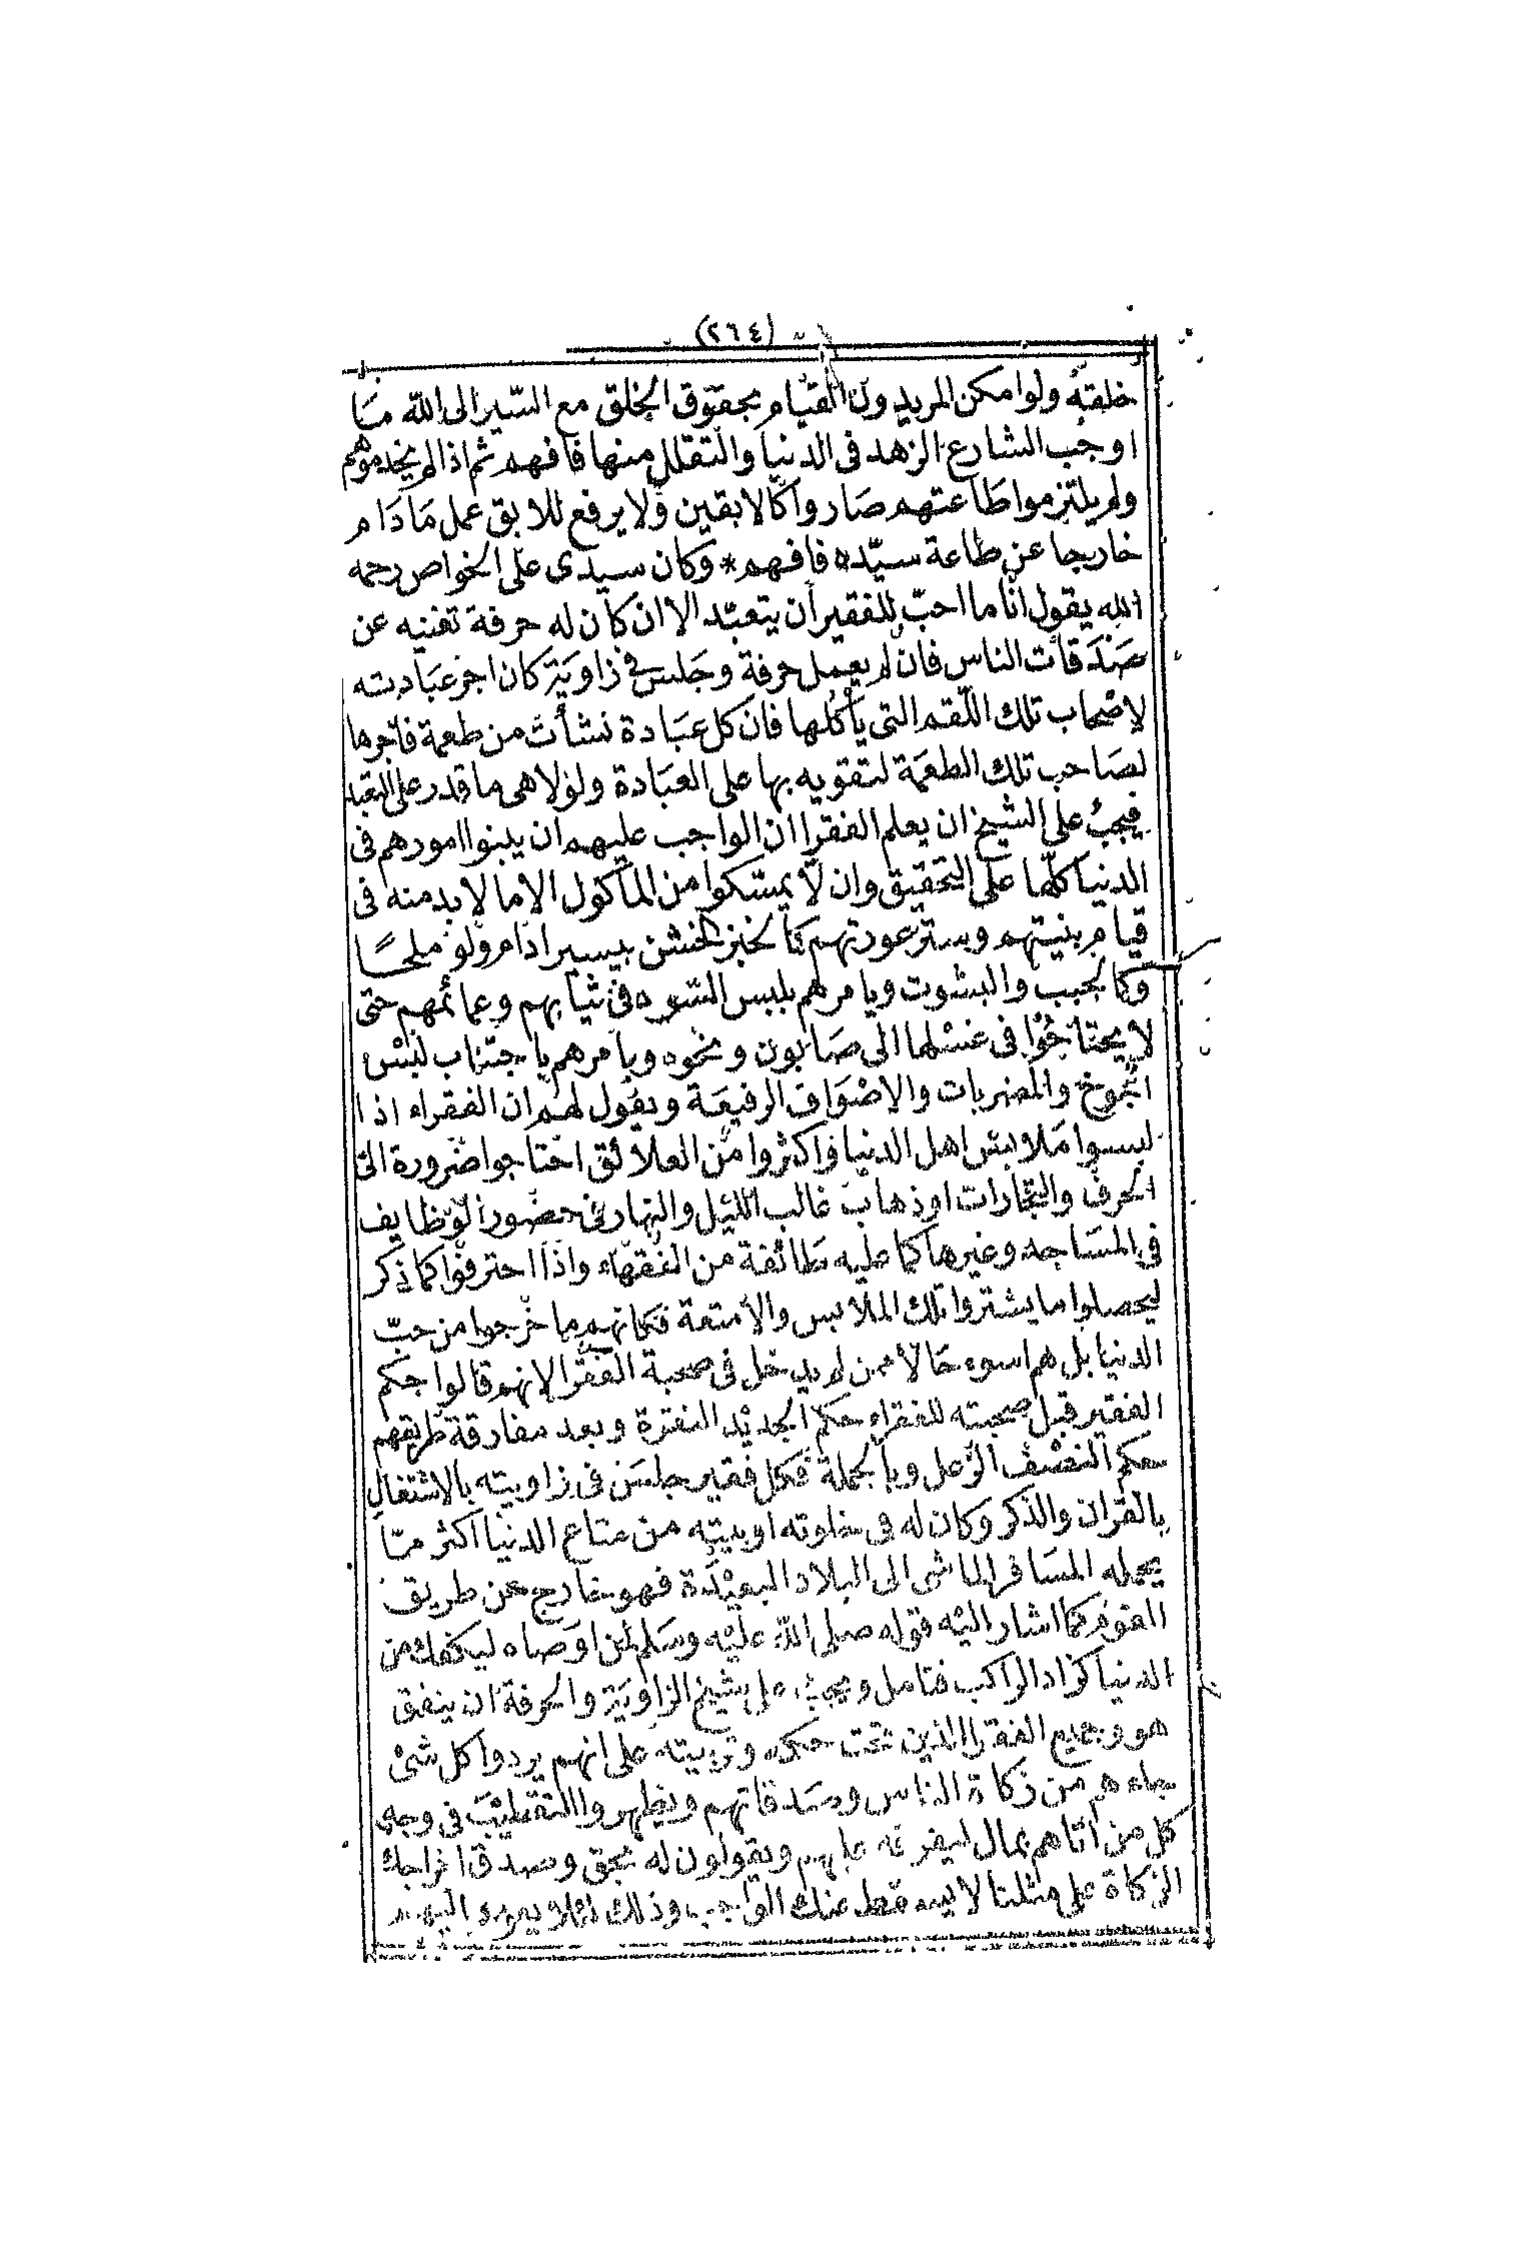 (٢٦٤)
خلقه ولو امكن المريدون القيام بحقوق الخلق مع السير الى الله ما
اوجب الشارع الزهد فى الدنيا والتقلل منها فافهم ثم اذا لم يخدموهم
ولم يلتزموا طاعتهم صاروا كالابقين ولا يرفع للابق عمل مادام
خارجا عن طاعة سيده فافهم * وكان سيدى على الخواص رحمه
الله يقول انا ما احب للفقير أن يتعبد الا ان كان له حرفة تغنيه عن
صدقات الناس فان لم يعمل حرفة وجلس فى زاوية كان اجر عبادته
لاصحاب تلك اللقم التى يأكلها فان كل عبادة نشأت من طعمة فاجرها
لصاحب تلك الطعمة لتقويه بها على العبادة ولولا هى ما قدر على التعبد
فيجب على الشيخ ان يعلم الفقرا ان الواجب عليهم ان يبنوا امورهم فى
الدنيا كلها على التحقيق وان لا يمسكوا من المأكول الا ما لا بد منه فى
قيام بنيتهم وستر عورتهم كالخبز الخشن بيسير ادام ولو ملحا
وكالجبب والبشوت ويامرهم بلبس السود فى ثيابهم وعمائمهم حتى
لا يحتاجوا فى غسلها الى صابون ونحوه ويامرهم باجتناب لبس
الجوخ والمضربات والاصواف الرفيعة ويقول لهم ان الفقراء اذا
لبسوا ملابس اهل الدنيا واكثروا من العلائق احتاجوا ضرورة الى
الحرف والتجارات او ذهاب غالب الليل والنهار فى حضور الوظايف
فى المساجد وغيرها كما عليه طائفة من الفقهاء واذا احترفوا كما ذكر
ليحصلوا ما يشتروا تلك الملابس والأمتعة فكانهم ما خرجوا من حب
الدنيا بل هم اسوء حالا ممن لم يدخل فى صحبة الفقرا لانهم قالوا حكم
الفقير قبل صحبته للفقراء حكم الجديد النقرة وبعد مفارقة طريقهم
حكم النصف الزغل وبالجملة فكل فقير جلس فى زاويته بالاشتغال
بالقران والذكر وكان له فى خلوته او بيته من متاع الدنيا اكثر مما
يحمله المسافر الماشى الى البلاد البعيدة فهو خارج عن طريق
القوم كما اشار اليه قوله صلى الله عليه وسلم لمن اوصاه ليكفك من
الدنيا كزاد الراكب فتامل ويجب على شيخ الزاوية والحرفة ان يتفق
هو وجميع الفقرا الذين تحت حكمه وتربيته على انهم يردوا كل شئ
جاءهم من زكاة الناس وصدقاتهم ويظهروا التقطيب فى وجه
كل من أتاهم بمال ليفرقه عليهم ويقولون له بحق وصدق اخراجك
الزكاة على مثلنا لا يسقط عنك الواجب وذلك لئلا